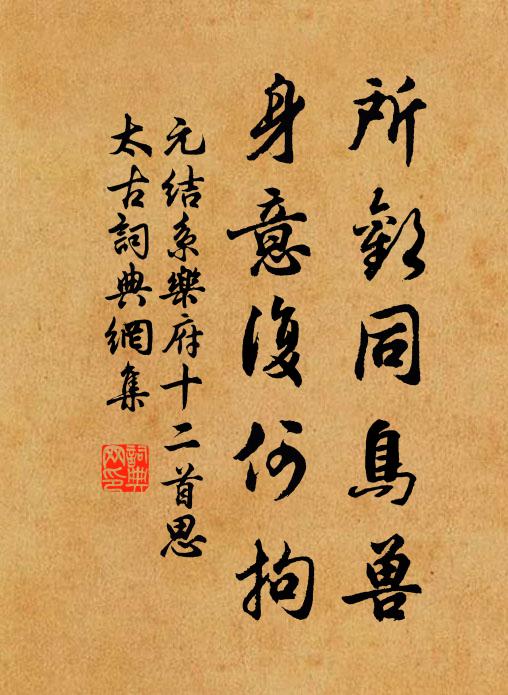 所歡同鳥兽
身意復何拘
元結系樂府十二首思
太古詞典網集
詞典
网印